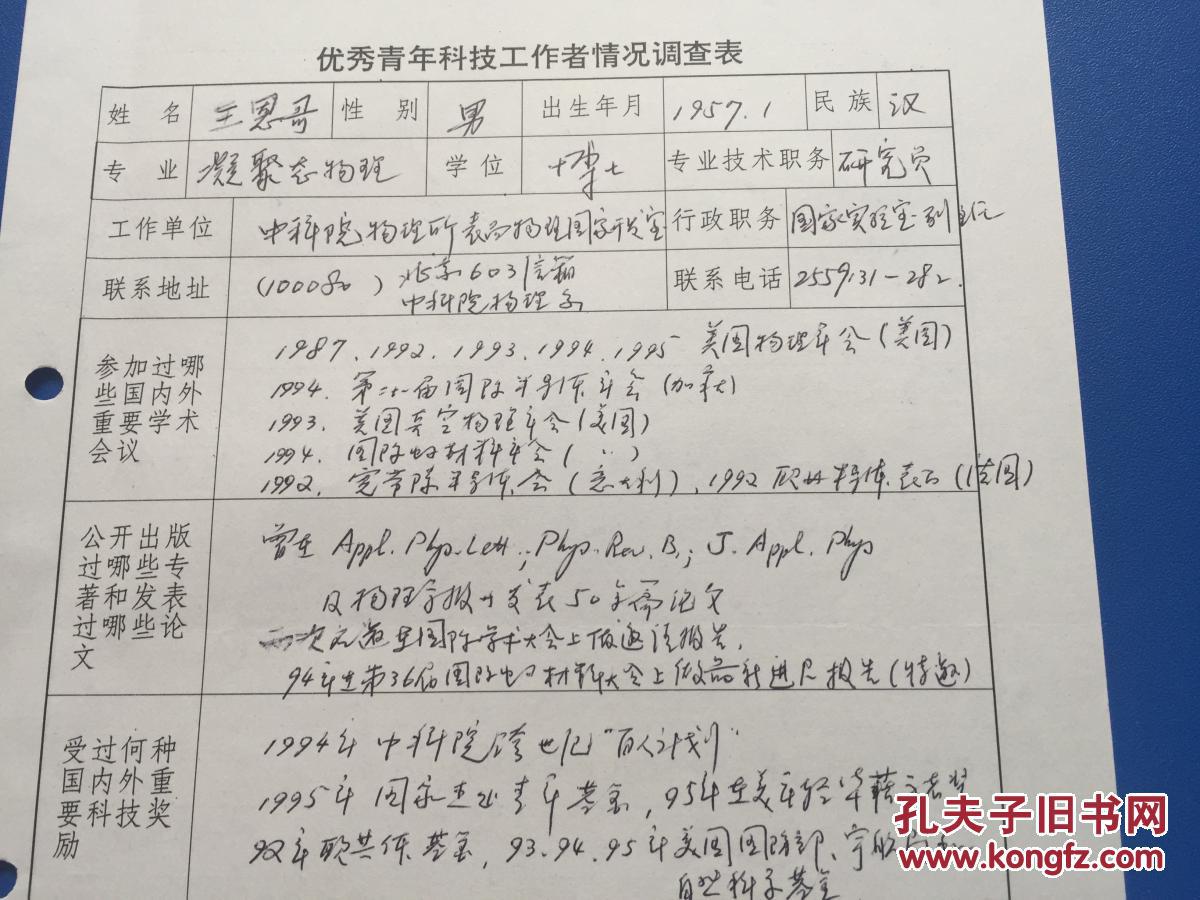 优秀青年科技工作者情况调查表
姓 名 王恩哥 性 别 男 出生年月 1957.1 民族 汉
专 业 凝聚态物理 学位 博士 专业技术职务 研究员
工作单位 中科院物理所表面物理国家实验室 行政职务 国家实验室副主任
联系地址 (100080) 北京603信箱 联系电话 2559131-282.
中科院物理所
参加过哪些国内外重要学术会议
1987.1992.1993.1994.1995 美国物理年会(美国)
1994. 第二十一届国际半导体年会(加拿大)
1993. 美国真空物理年会(美国)
1994. 国际电子材料年会( 〃 )
1992. 宽带隙半导体会(意大利),1992 欧洲半导体表面(法国)
公开出版过哪些专著和发表过哪些论文
曾在 Appl. Phys. Lett.; Phys. Rev. B.; J. Appl. Phys
及物理学报 发表50余篇论文
国际学术大会上做邀请报告.
94年在第36届国际电子材料大会上做最新进展报告(特邀)
受过何种国内外重要科技奖励
1994年 中科院跨世纪“百人计划”
1995年 国家杰出青年基金,95年 美年轻华裔
92年 欧共体基金,93.94.95年美国国防部、宇航局
自然科学基金
孔夫子旧书网
www.kongfz.com